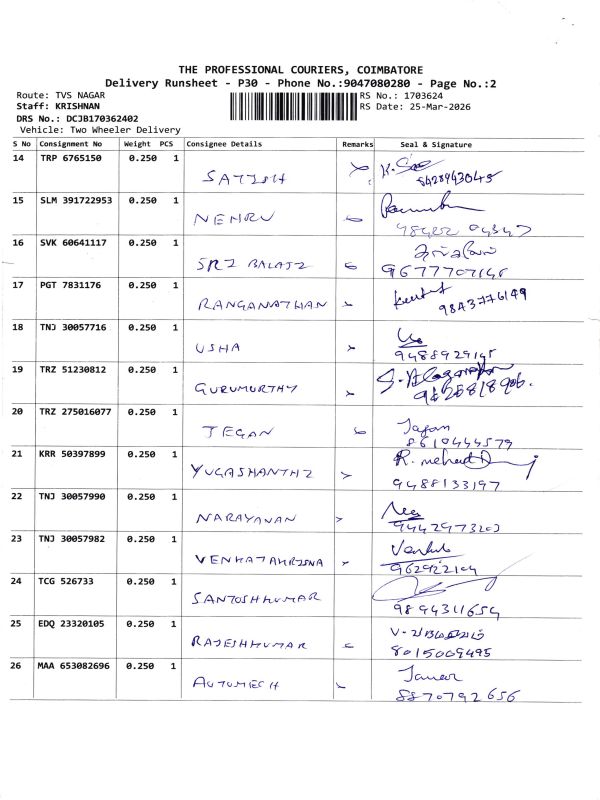 THE PROFESSIONAL COURIERS, COIMBATORE
Delivery Runsheet - P30 - Phone No.:9047080280 - Page No.:2
Route: TVS NAGAR
RS No.: 1703624
Staff: KRISHNAN
RS Date: 25-Mar-2026
DRS No.: DCJB170362402
Vehicle: Two Wheeler Delivery
S No Consignment No Weight PCS Consignee Details Remarks Seal & Signature
14 TRP 6765150 0.250 1 SATISH
15 SLM 391722953 0.250 1 NEHRU
16 SVK 60641117 0.250 1 SRI BALAJI
9677707145
17 PGT 7831176 0.250 1 RANGANATHAN
9843776149
18 TNJ 30057716 0.250 1 USHA
9488929145
19 TRZ 51230812 0.250 1 GURUMURTHY
20 TRZ 275016077 0.250 1 JEGAN
8610444579
21 KRR 50397899 0.250 1 YUGASHANTHI
9488133197
22 TNJ 30057990 0.250 1 NARAYANAN
9442973203
23 TNJ 30057982 0.250 1
24 TCG 526733 0.250 1 SANTOSHKUMAR
9894311654
25 EDQ 23320105 0.250 1 RAJESHKUMAR
8015009495
26 MAA 653082696 0.250 1 AUTOMECH
8870792656